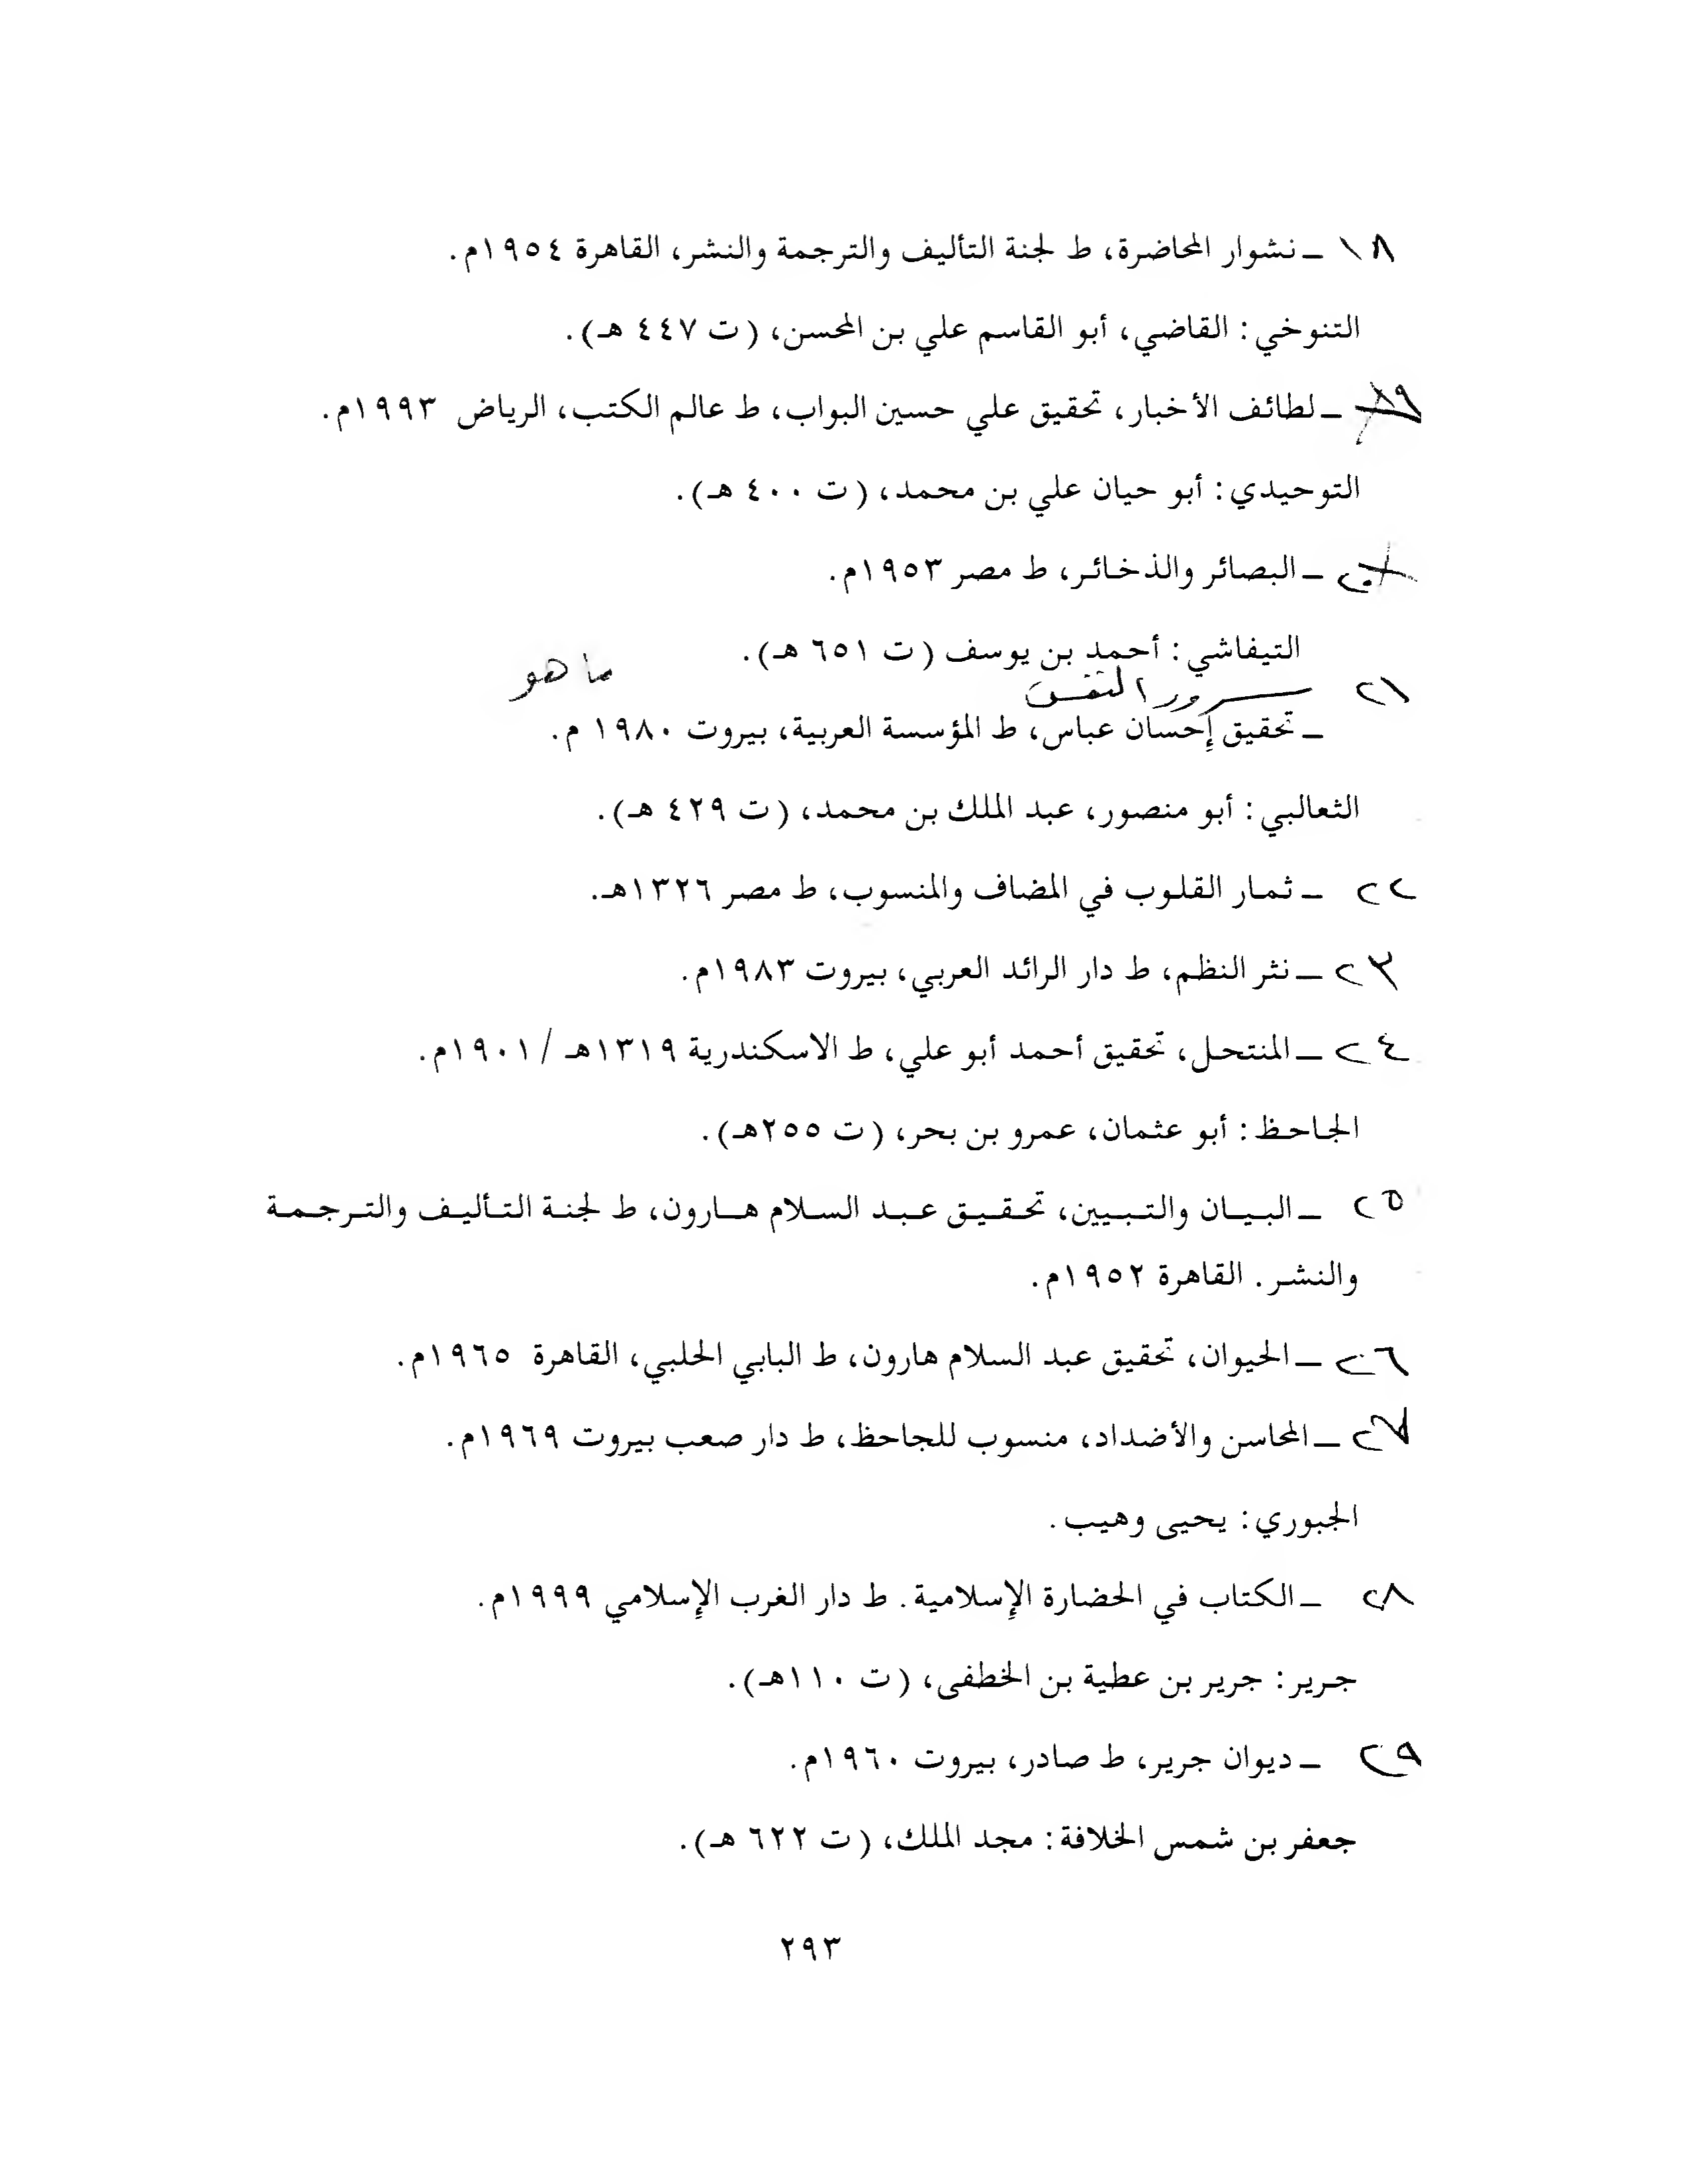 ١٨ ـ نشوار المحاضرة، ط لجنة التأليف والترجمة والنشر، القاهرة ١٩٥٤م.
التنوخي: القاضي، أبو القاسم علي بن المحسن، (ت ٤٤٧ هـ).
١٩ ـ لطائف الأخبار، تحقيق علي حسين البواب، ط عالم الكتب، الرياض ١٩٩٣م.
التوحيدي: أبو حيان علي بن محمد، (ت ٤٠٠ هـ).
ـ البصائر والذخائر، ط مصر ١٩٥٣م.
التيفاشي: أحمد بن يوسف (ت ٦٥١ هـ).
٢١ سرور النفس ما هو
ـ تحقيق إحسان عباس، ط المؤسسة العربية، بيروت ١٩٨٠ م.
الثعالبي: أبو منصور، عبد الملك بن محمد، (ت ٤٢٩ هـ).
٢٢ ـ ثمار القلوب في المضاف والمنسوب، ط مصر ١٣٢٦هـ.
٢٣ ـ نثر النظم، ط دار الرائد العربي، بيروت ١٩٨٣م.
٢٤ ـ المنتحل، تحقيق أحمد أبو علي، ط الاسكندرية ١٣١٩هـ / ١٩٠١م.
الجاحظ: أبو عثمان، عمرو بن بحر، (ت ٢٥٥هـ).
٢٥ ـ البيان والتبيين، تحقيق عبد السلام هارون، ط لجنة التأليف والترجمة
والنشر. القاهرة ١٩٥٢م.
٢٦ ـ الحيوان، تحقيق عبد السلام هارون، ط البابي الحلبي، القاهرة ١٩٦٥م.
٢٧ ـ المحاسن والأضداد، منسوب للجاحظ، ط دار صعب بيروت ١٩٦٩م.
الجبوري: يحيى وهيب.
٢٨ ـ الكتاب في الحضارة الإسلامية. ط دار الغرب الإسلامي ١٩٩٩م.
جرير: جرير بن عطية بن الخطفى، (ت ١١٠هـ).
٢٩ ـ ديوان جرير، ط صادر، بيروت ١٩٦٠م.
جعفر بن شمس الخلافة: مجد الملك، (ت ٦٢٢ هـ).
٢٩٣